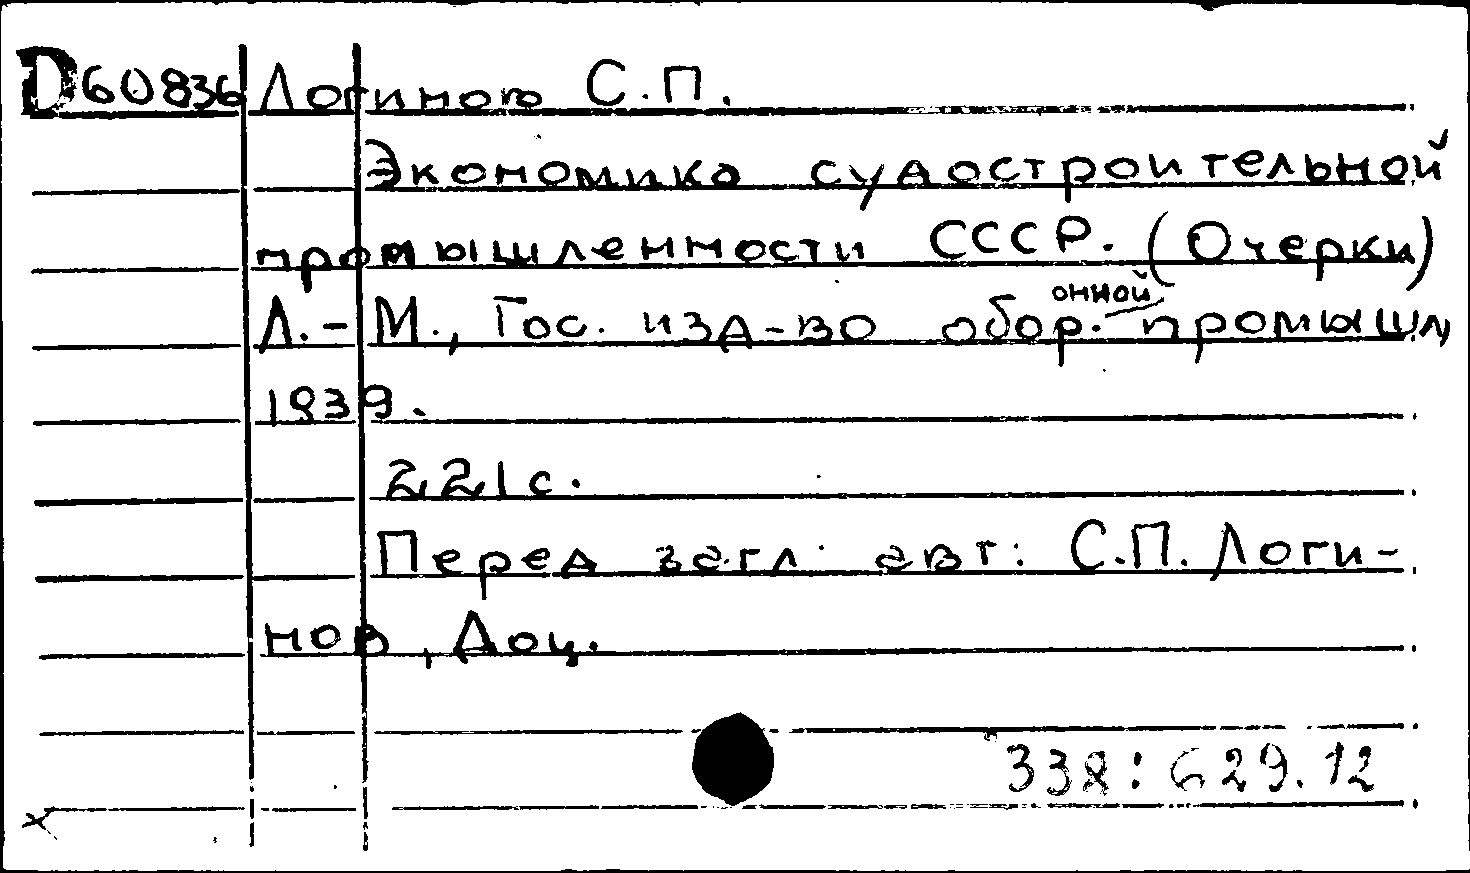 D60836 Логинов С.П.
Экономика судостроительной
промышленности СССР. (Очерки)
Л.-М., Гос. изд-во обор.онной промышл,
1939.
221 с.
Перед загл. авт: С.П. Логи-
нов, Доц.
338:629.12